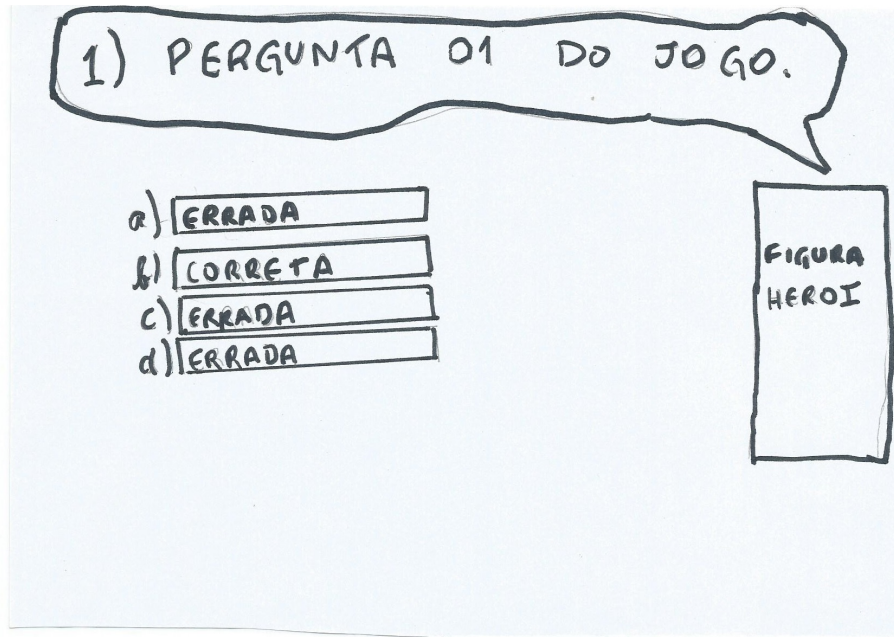 1) PERGUNTA 01 DO JOGO.
a) ERRADA
b) CORRETA
c) ERRADA
d) ERRADA
FIGURA
HEROI